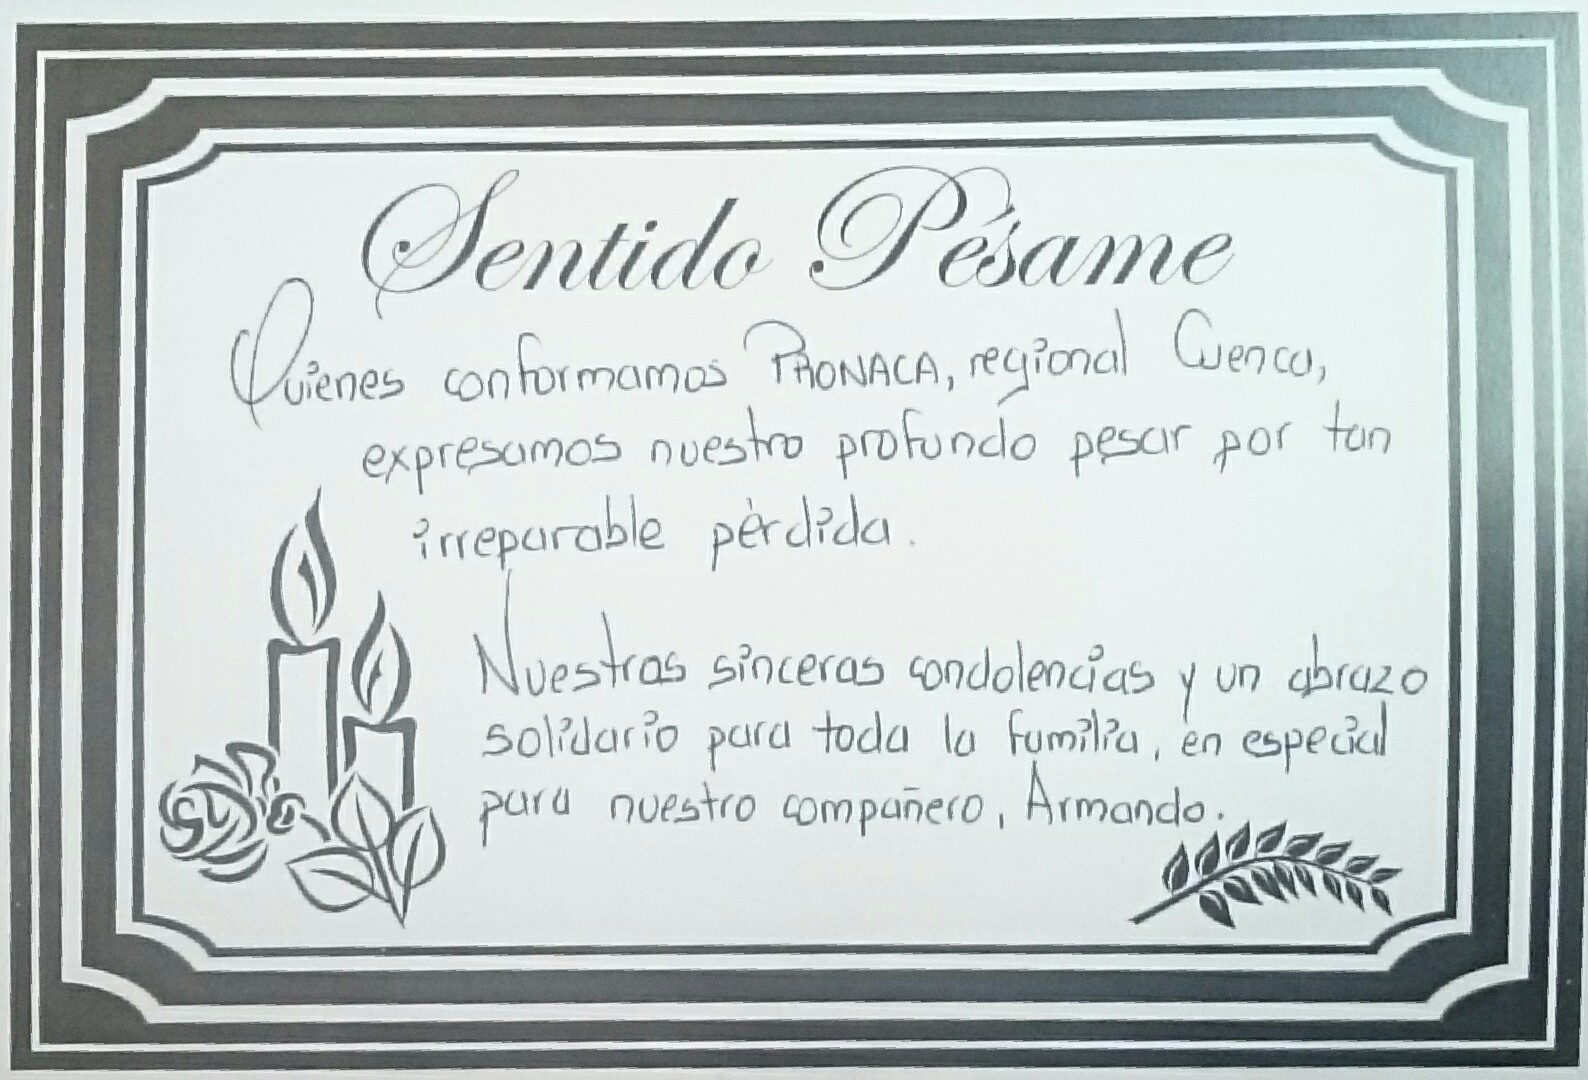 Sentido Pésame
Quienes conformamos PRONACA, regional Cuenca,
expresamos nuestro profundo pesar por tan
irreparable pérdida.
Nuestras sinceras condolencias y un abrazo
solidario para toda la familia, en especial
para nuestro compañero, Armando.